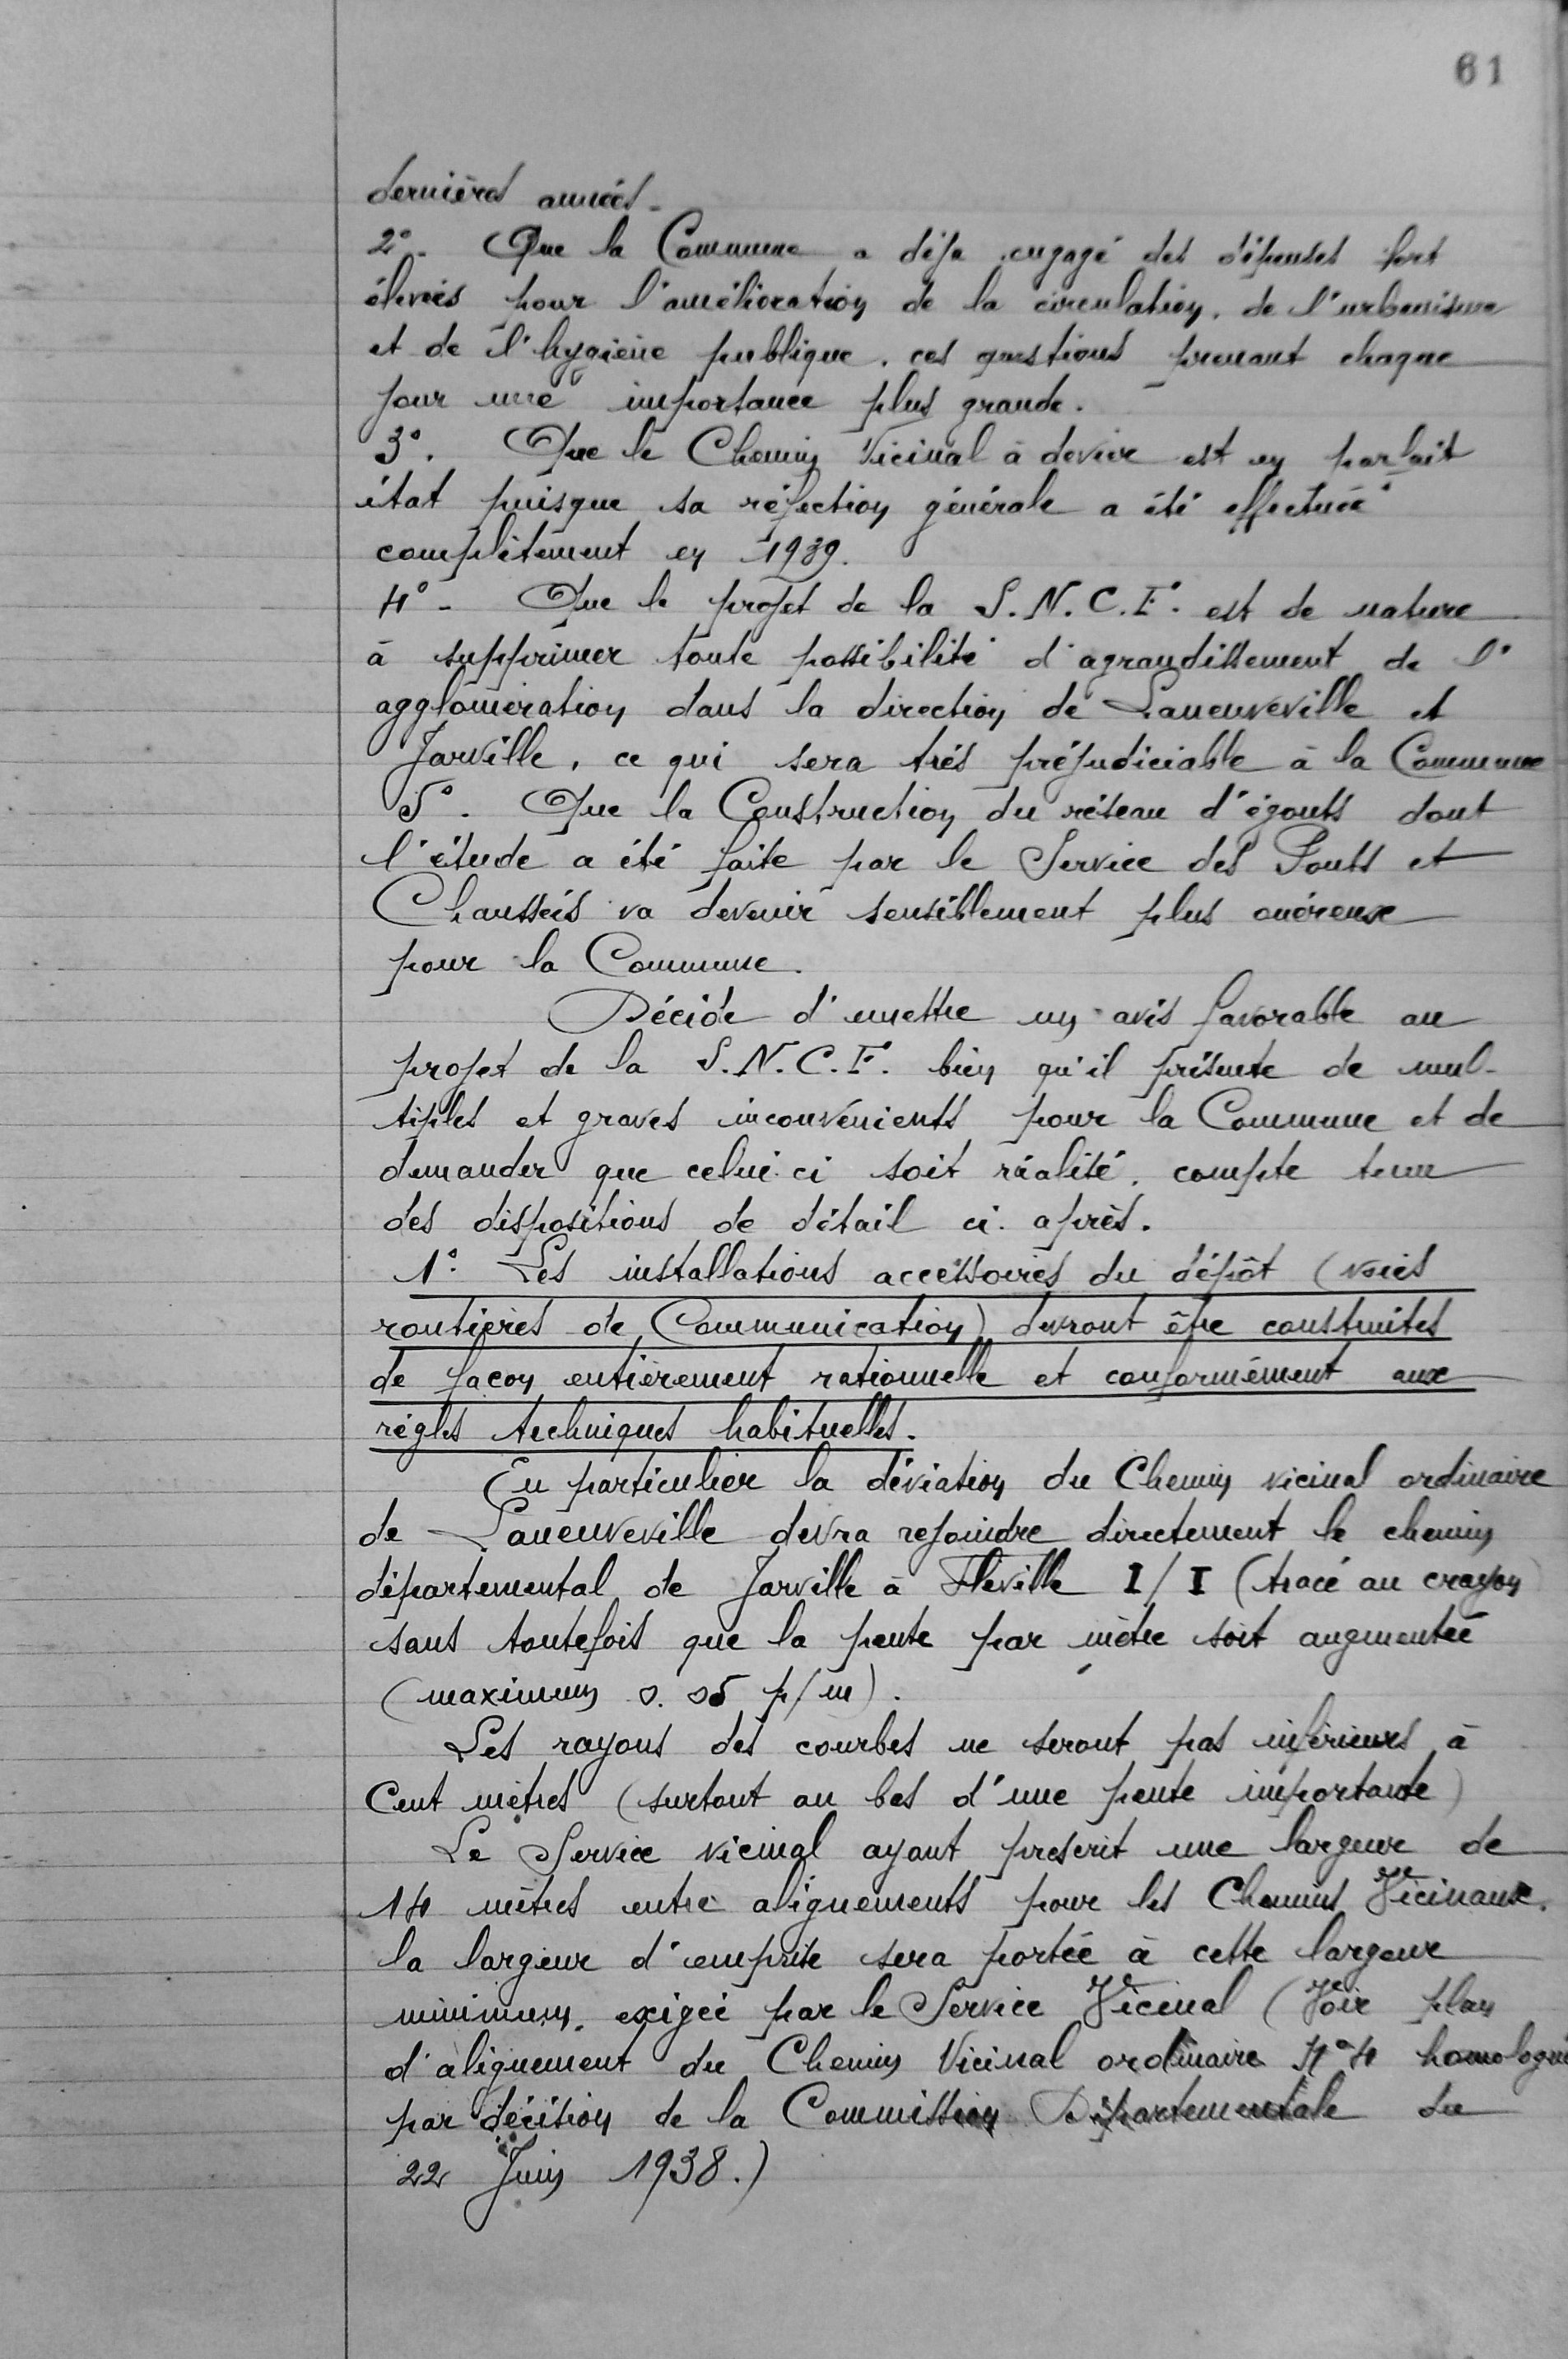 61
dernières années.
2°. Que la Commune a déja engagé des dépenses fort
élevées pour l'amélioration de la circulation, de l'urbanisme
et de l'hygiène publique, ces questions prenant chaque
jour une importance plus grande.
3°. Que le Chemin Vicinal à dévier est en parfait
état puisque sa réfection générale a été effectuée
complètement en 1939.
4°- Que le projet de la S.N.C.F. est de nature
à supprimer toute possibilité d'agrandissement de l'
agglomération dans la direction de Laneuveville et
Jarville, ce qui sera très préjudiciable à la Commune
5°. Que la Construction du réseau d'égouts dont
l'étude a été faite par le Service des Ponts et
Chaussées va devenir sensiblement plus onéreuse
pour la Commune.
Décide d'emettre un avis favorable au
projet de la S.N.C.F. bien qu'il présente de mul-
tiples et graves inconvénients pour la Commune et de
demander que celui ci soit réalisé, compte tenu
des dispositions de détail ci-après.
1° Les installations accessoires du dépôt (voies
routières de Communication) devront être construites
de façon entièrement rationnelle et conformément aux
règles techniques habituelles.
En particulier la déviation du Chemin vicinal ordinaire
de Laneuveville devra rejoindre directement le chemin
départemental de Jarville à Fléville I/I (tracé au crayon)
sans toutefois que la pente par mètre soit augmentée
(maximum 0.05 p/m).
Les rayons des courbes ne seront pas inférieurs à
Cent mètres (surtout au bas d'une pente importante)
Le Service vicinal ayant prescrit une largeur de
14 mètres entre alignements pour les Chemins Vicinaux,
la largeur d'emprise sera portée à cette largeur
minimum, exigée par le Service Vicinal (Voir plan
d'alignement du Chemin Vicinal ordinaire N°4 homologué
par décision de la Commission Départementale du
22 Juin 1938.)